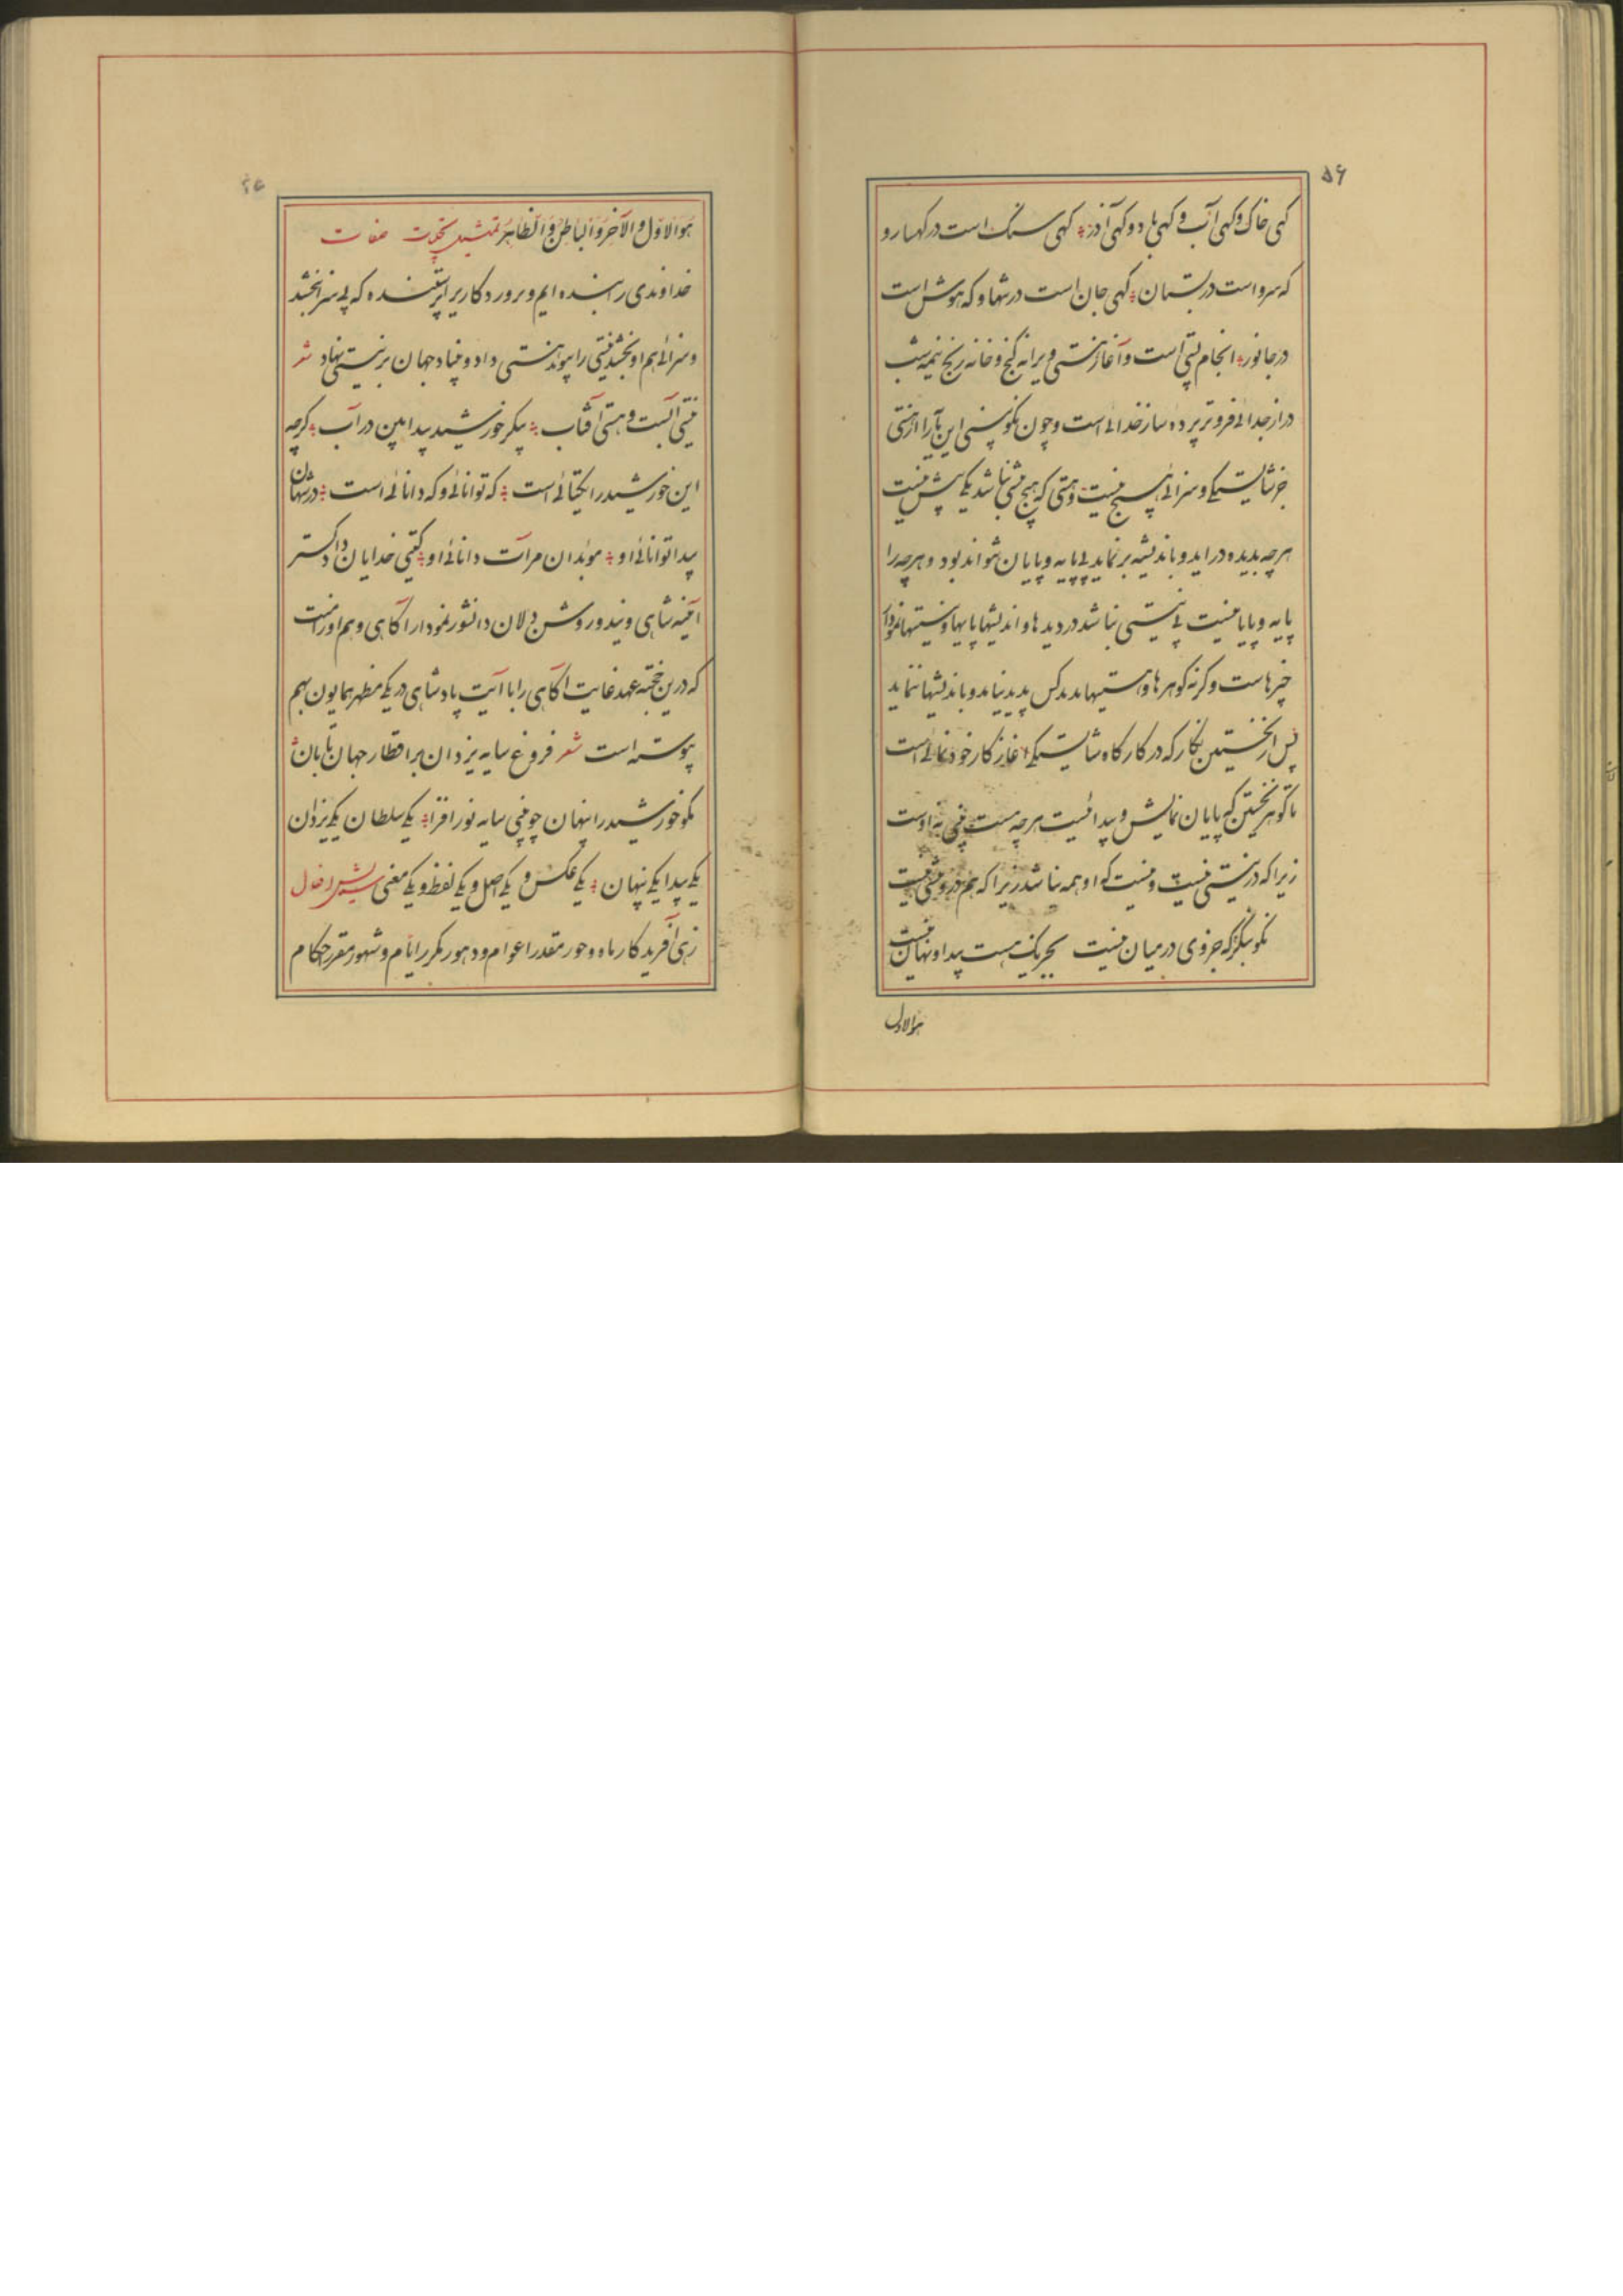 ۵۶
کهی خاک و کهی آب و کهی باد و کهی آذر؛ کهی سنک است در کهسار و
که سرو است در بستان؛ کهی جان است در تنها و که هوش است
در جانور؛ انجام نیستی است و آغاز هستی ویرانه کنج و خانه رنج نیمه شب
دراز جدائی فروتر پرده ساز خدائی است و چون نکو بینی این را از هستی
جز شایستکی و سزائی هیچ نیست و هستی که هیچ نیستی نباشد یکی بیش نیست
هرچه بدیده در اید و باندیشه بر نماید بی پایه و پایان نتواند بود و هرچه را
پایه و پایان نیست بی نیستی نباشد در دیده ها و اندیشها پایها و نیستیها نمودار
چیزهاست وکرنه کوهرها و هستیها بدید کس پدید نیاید و باندیشها ننماید
پس از نخستین نکار که در کارکاه شایستکی آغاز کار خودنمائی است
تا کوهر نخستین که پایان نمایش و پیدائیست هرچه هست نه اوست
زیرا که در نیستی نیست و نیست که او همه نباشد زیرا که هم در نیست
نکو بنکر که جزوی در میان نیست بجز یک هست پیدا و نهان نیست
هوالاول
هوالاول والآخر والباطن والظاهر تمثیل تجلیات صفات
خداوندی را بنده ایم و پروردکاریرا پرستنده که بی سزا بخشد
و سزائی هم او بخشد نیستی را پیوند هستی داد و بنیاد جهان بر نیستی نهاد شعر
نیستی آبست و هستی آفتاب؛ پیکر خورشید پیدا بین در آب؛ کرچه
این خورشید را یکتائی است؛ که توانائی و که دانائی است؛ در شهان
پیدا توانائی او؛ موبدان مرآت دانائی او؛ کیتی خدایان دادکستر
آئینه شاهی ویند و روشن دلان دانشور نمودار آکاهی و هم اوراست
که درین خجسته عهد غایت آکاهی را با آیت پادشاهی در یک مظهر همایون بهم
پیوسته است شعر فروغ سایه یزدان بر اقطار جهان تابان
نکو خورشید را پنهان چو بینی سایه نورافزا؛ یکی سلطان یکی یزدان
یکی پیدا یکی پنهان؛ یکی عکس و یکی اصل و یکی لفظ و یکی معنی ستایش افعال
زهی آفریدکار ماه و حور مقدر اعوام و دهور مکرر ایام و شهور مقرر احکام